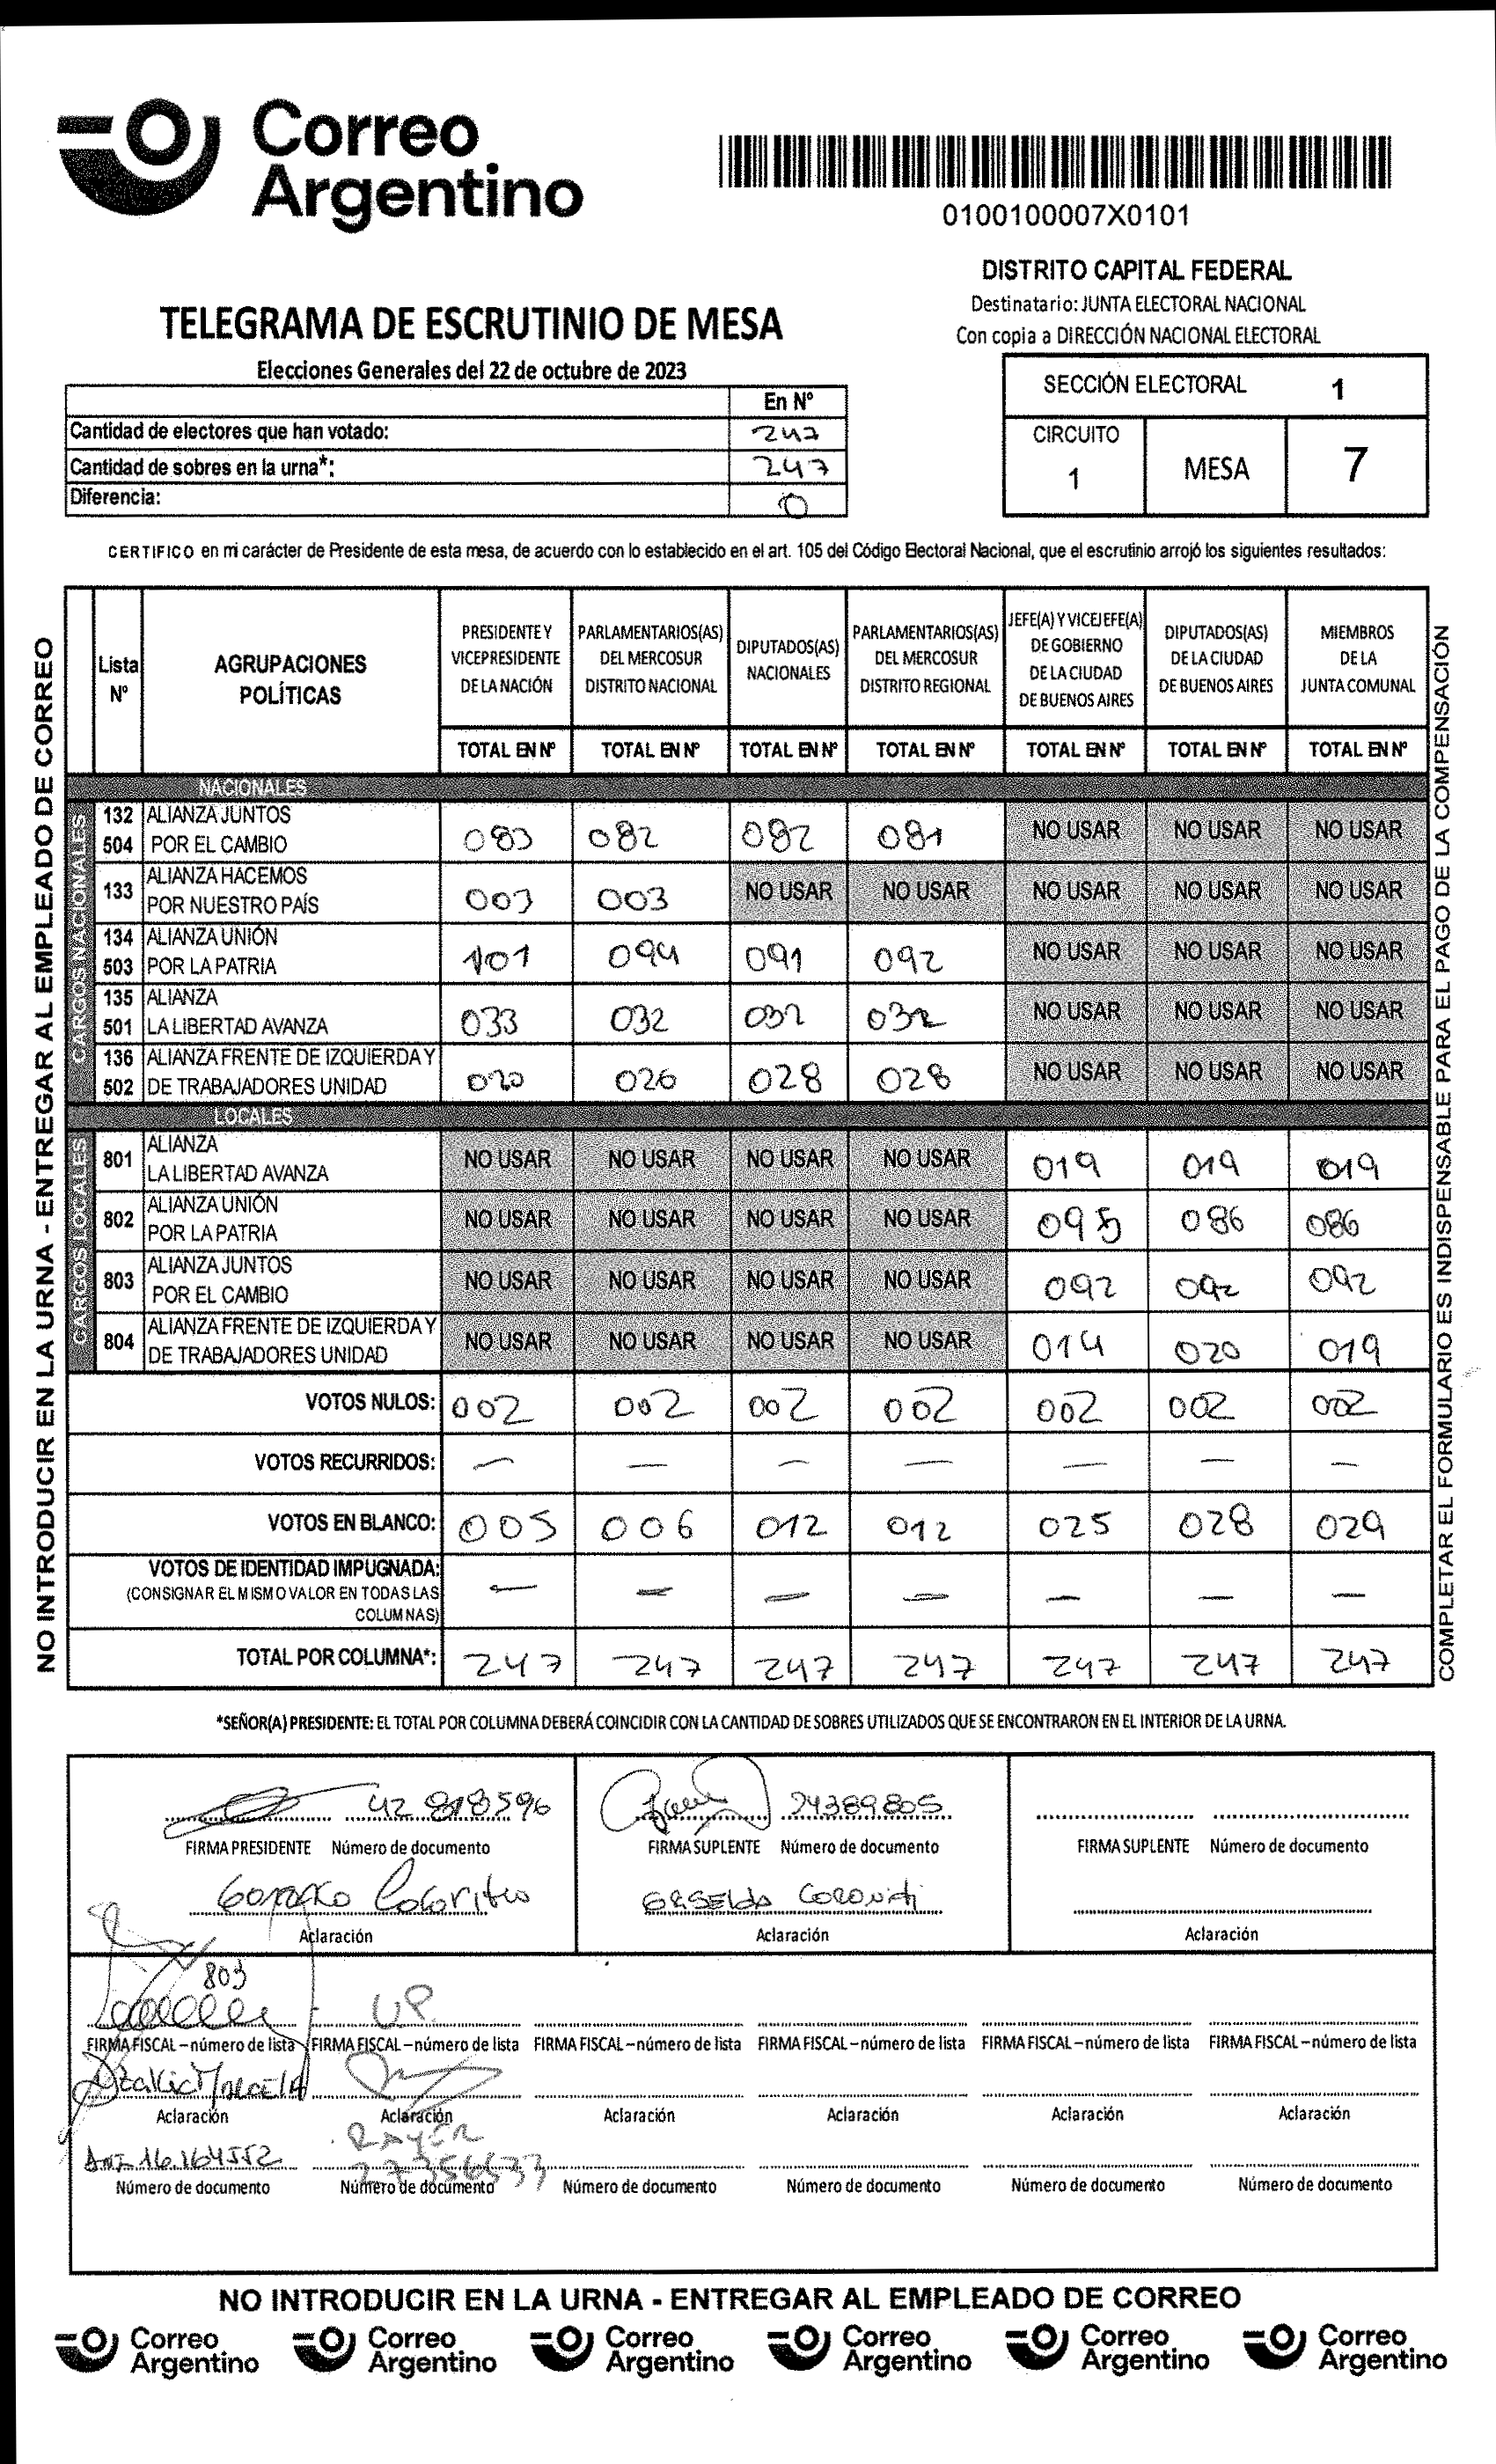 Correo
Argentino
0100100007X0101
DISTRITO CAPITAL FEDERAL
Destinatario: JUNTA ELECTORAL NACIONAL
Con copia a DIRECCIÓN NACIONAL ELECTORAL
TELEGRAMA DE ESCRUTINIO DE MESA
Elecciones Generales del 22 de octubre de 2023
En Nº
Cantidad de electores que han votado: 247
Cantidad de sobres en la urna*: 247
Diferencia: 0
SECCIÓN ELECTORAL 1
CIRCUITO 1 MESA 7
CERTIFICO en mi carácter de Presidente de esta mesa, de acuerdo con lo establecido en el art. 105 del Código Electoral Nacional, que el escrutinio arrojó los siguientes resultados:
NO INTRODUCIR EN LA URNA - ENTREGAR AL EMPLEADO DE CORREO
Lista Nº
AGRUPACIONES POLÍTICAS
PRESIDENTE Y VICEPRESIDENTE DE LA NACIÓN
PARLAMENTARIOS(AS) DEL MERCOSUR DISTRITO NACIONAL
DIPUTADOS(AS) NACIONALES
PARLAMENTARIOS(AS) DEL MERCOSUR DISTRITO REGIONAL
JEFE(A) Y VICEJEFE(A) DE GOBIERNO DE LA CIUDAD DE BUENOS AIRES
DIPUTADOS(AS) DE LA CIUDAD DE BUENOS AIRES
MIEMBROS DE LA JUNTA COMUNAL
TOTAL EN Nº TOTAL EN Nº TOTAL EN Nº TOTAL EN Nº TOTAL EN Nº TOTAL EN Nº TOTAL EN Nº
NACIONALES
CARGOS NACIONALES
132 504 ALIANZA JUNTOS POR EL CAMBIO 083 082 082 081 NO USAR NO USAR NO USAR
133 ALIANZA HACEMOS POR NUESTRO PAÍS 003 003 NO USAR NO USAR NO USAR NO USAR NO USAR
134 503 ALIANZA UNIÓN POR LA PATRIA 101 094 091 092 NO USAR NO USAR NO USAR
135 501 ALIANZA LA LIBERTAD AVANZA 033 032 032 032 NO USAR NO USAR NO USAR
136 502 ALIANZA FRENTE DE IZQUIERDA Y DE TRABAJADORES UNIDAD 020 028 028 028 NO USAR NO USAR NO USAR
LOCALES
CARGOS LOCALES
801 ALIANZA LA LIBERTAD AVANZA NO USAR NO USAR NO USAR NO USAR 019 019 019
802 ALIANZA UNIÓN POR LA PATRIA NO USAR NO USAR NO USAR NO USAR 095 086 086
803 ALIANZA JUNTOS POR EL CAMBIO NO USAR NO USAR NO USAR NO USAR 092 092 092
804 ALIANZA FRENTE DE IZQUIERDA Y DE TRABAJADORES UNIDAD NO USAR NO USAR NO USAR NO USAR 014 020 019
VOTOS NULOS: 002 002 002 002 002 002 002
VOTOS RECURRIDOS: — — — — — — —
VOTOS EN BLANCO: 005 006 012 012 025 028 029
VOTOS DE IDENTIDAD IMPUGNADA: — — — — — — —
(CONSIGNAR EL MISMO VALOR EN TODAS LAS COLUMNAS)
TOTAL POR COLUMNA*: 247 247 247 247 247 247 247
COMPLETAR EL FORMULARIO ES INDISPENSABLE PARA EL PAGO DE LA COMPENSACIÓN
*SEÑOR(A) PRESIDENTE: EL TOTAL POR COLUMNA DEBERÁ COINCIDIR CON LA CANTIDAD DE SOBRES UTILIZADOS QUE SE ENCONTRARON EN EL INTERIOR DE LA URNA.
42 818596 24389805
FIRMA PRESIDENTE Número de documento FIRMA SUPLENTE Número de documento FIRMA SUPLENTE Número de documento
Aclaración Aclaración Aclaración
803 UP.
FIRMA FISCAL – número de lista FIRMA FISCAL – número de lista FIRMA FISCAL – número de lista FIRMA FISCAL – número de lista FIRMA FISCAL – número de lista FIRMA FISCAL – número de lista
Aclaración Aclaración Aclaración Aclaración Aclaración Aclaración
DNI 16.164552 27356533
Número de documento Número de documento Número de documento Número de documento Número de documento Número de documento
NO INTRODUCIR EN LA URNA - ENTREGAR AL EMPLEADO DE CORREO
Correo Argentino Correo Argentino Correo Argentino Correo Argentino Correo Argentino Correo Argentino